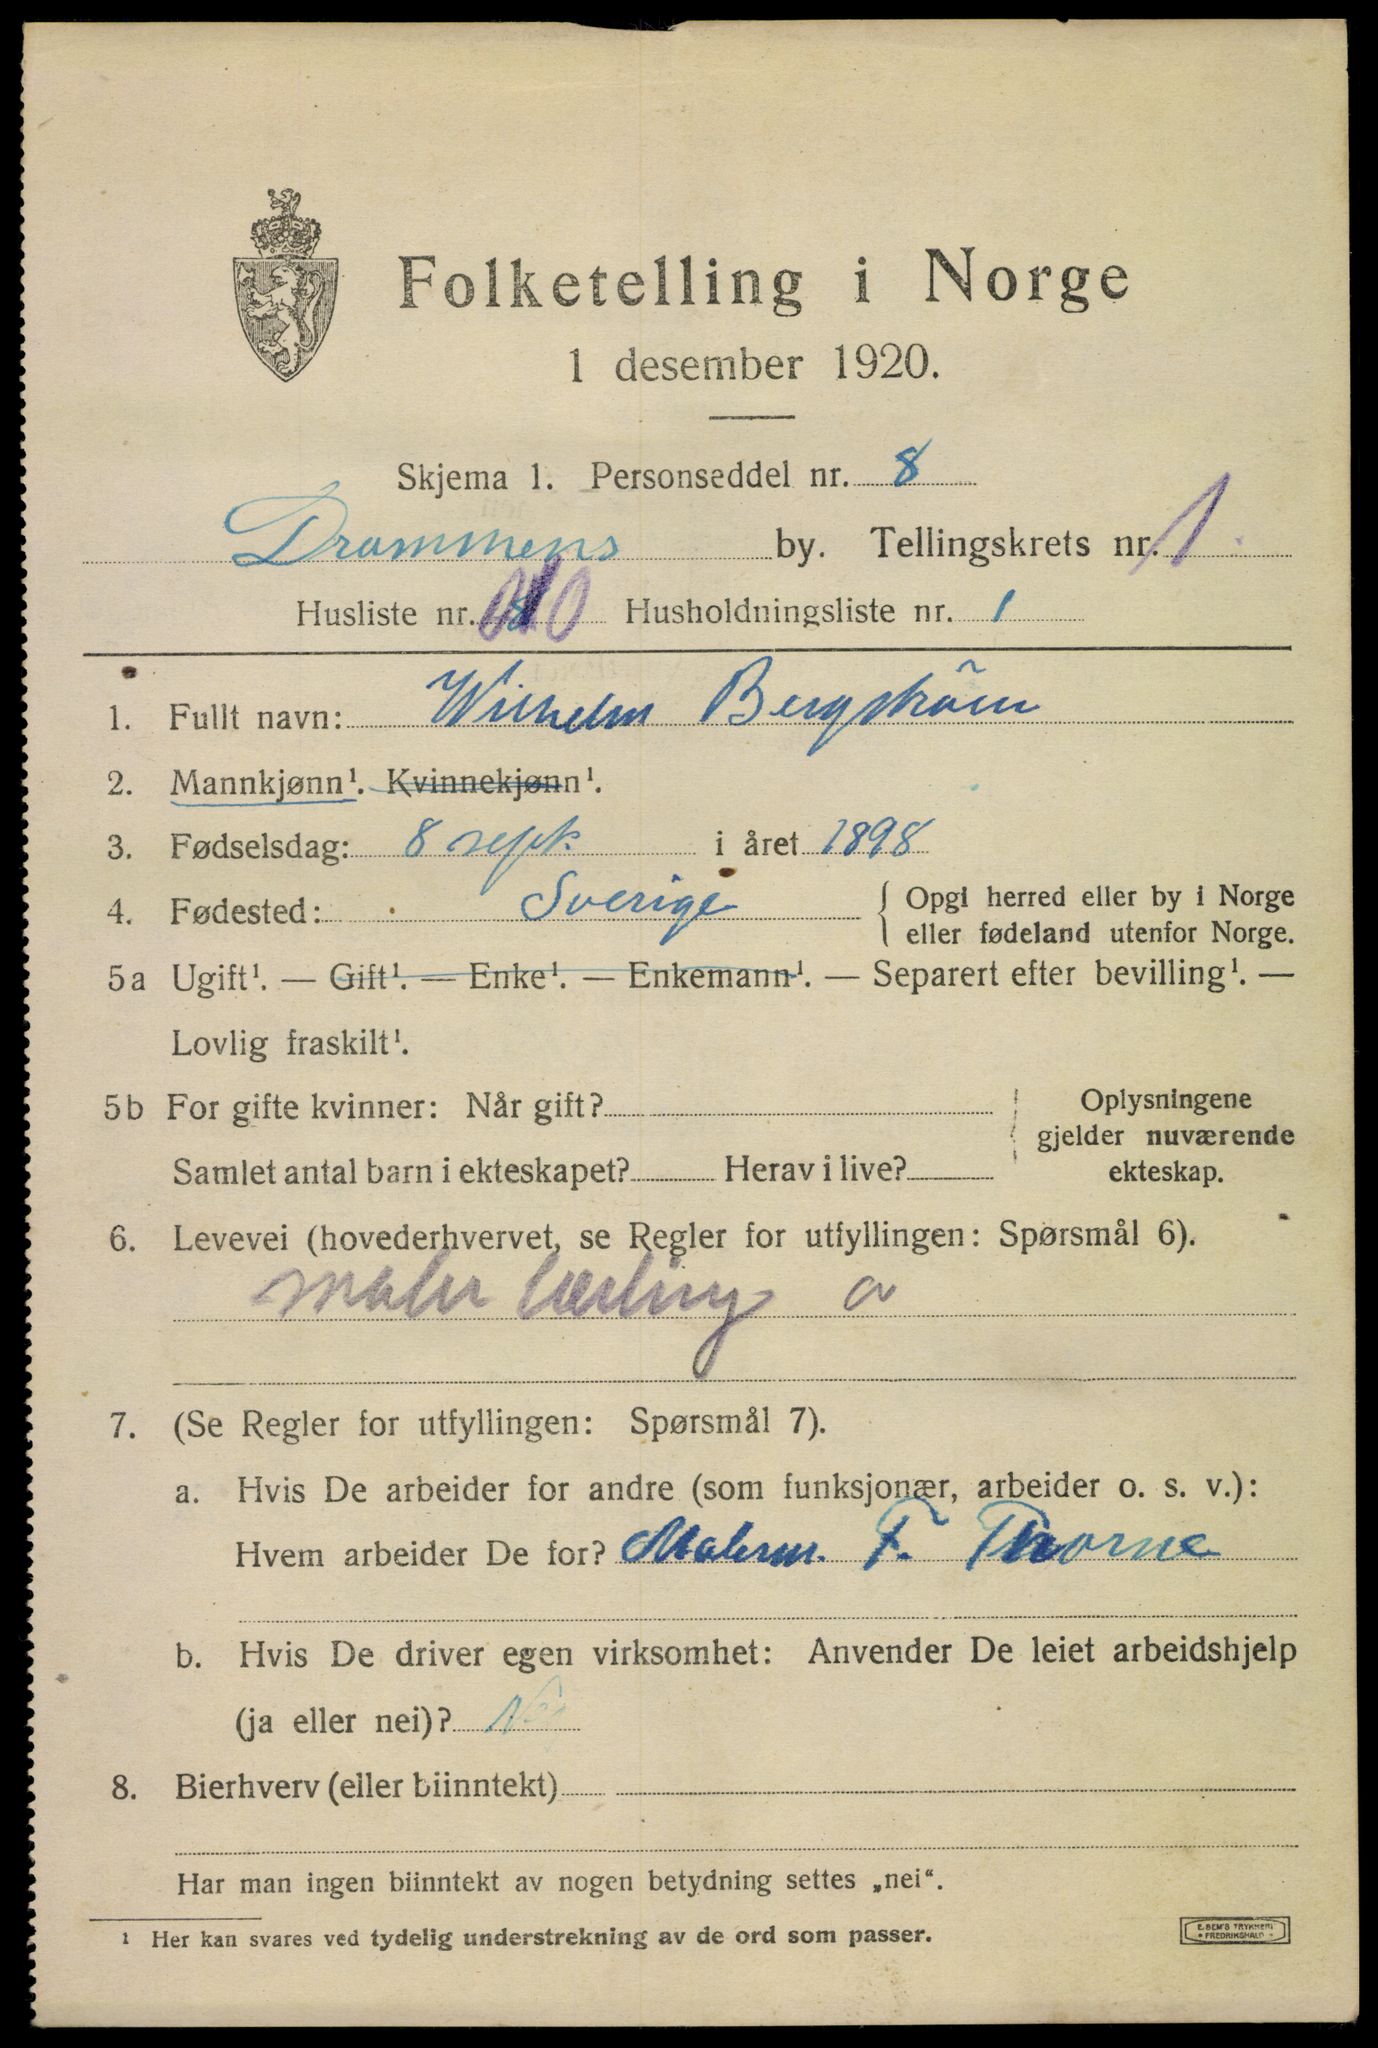 Folketelling i Norge
1 desember 1920.
Skjema 1. Personseddel nr. 8
Drammens by. Tellingskrets nr. 1
Husliste nr. Husholdningsliste nr. 1
1. Fullt navn: Wilhelm Bergström
2. Mannkjønn¹. Kvinnekjønn¹.
3. Fødselsdag: 8 sept. i året 1898
4. Fødested: Sverige { Opgi herred eller by i Norge
eller fødeland utenfor Norge.
5a Ugift¹. — Gift¹. — Enke¹. — Enkemann¹. — Separert efter bevilling¹. —
Lovlig fraskilt¹.
5b For gifte kvinner: Når gift? Oplysningene
gjelder nuværende
Samlet antal barn i ekteskapet? Herav i live? ekteskap.
6. Levevei (hovederhvervet, se Regler for utfyllingen: Spørsmål 6).
Maler lærling a
7. (Se Regler for utfyllingen: Spørsmål 7).
a. Hvis De arbeider for andre (som funksjonær, arbeider o. s. v.):
Hvem arbeider De for? Malerm. F. Thorne
b. Hvis De driver egen virksomhet: Anvender De leiet arbeidshjelp
(ja eller nei)? Nei
8. Bierhverv (eller biinntekt)
Har man ingen biinntekt av nogen betydning settes „nei“.
¹ Her kan svares ved tydelig understrekning av de ord som passer.
E. SEM'S TRYKKERI
• FREDRIKSHALD •